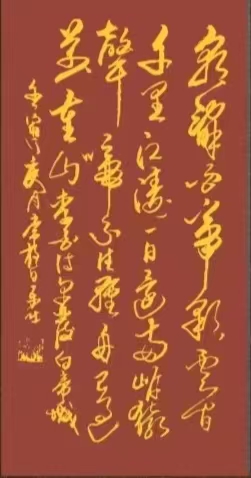 朝辭白帝彩雲間
千里江陵一日還兩岸猿
聲啼不住輕舟已過
萬重山李白詩早發白帝城
壬寅